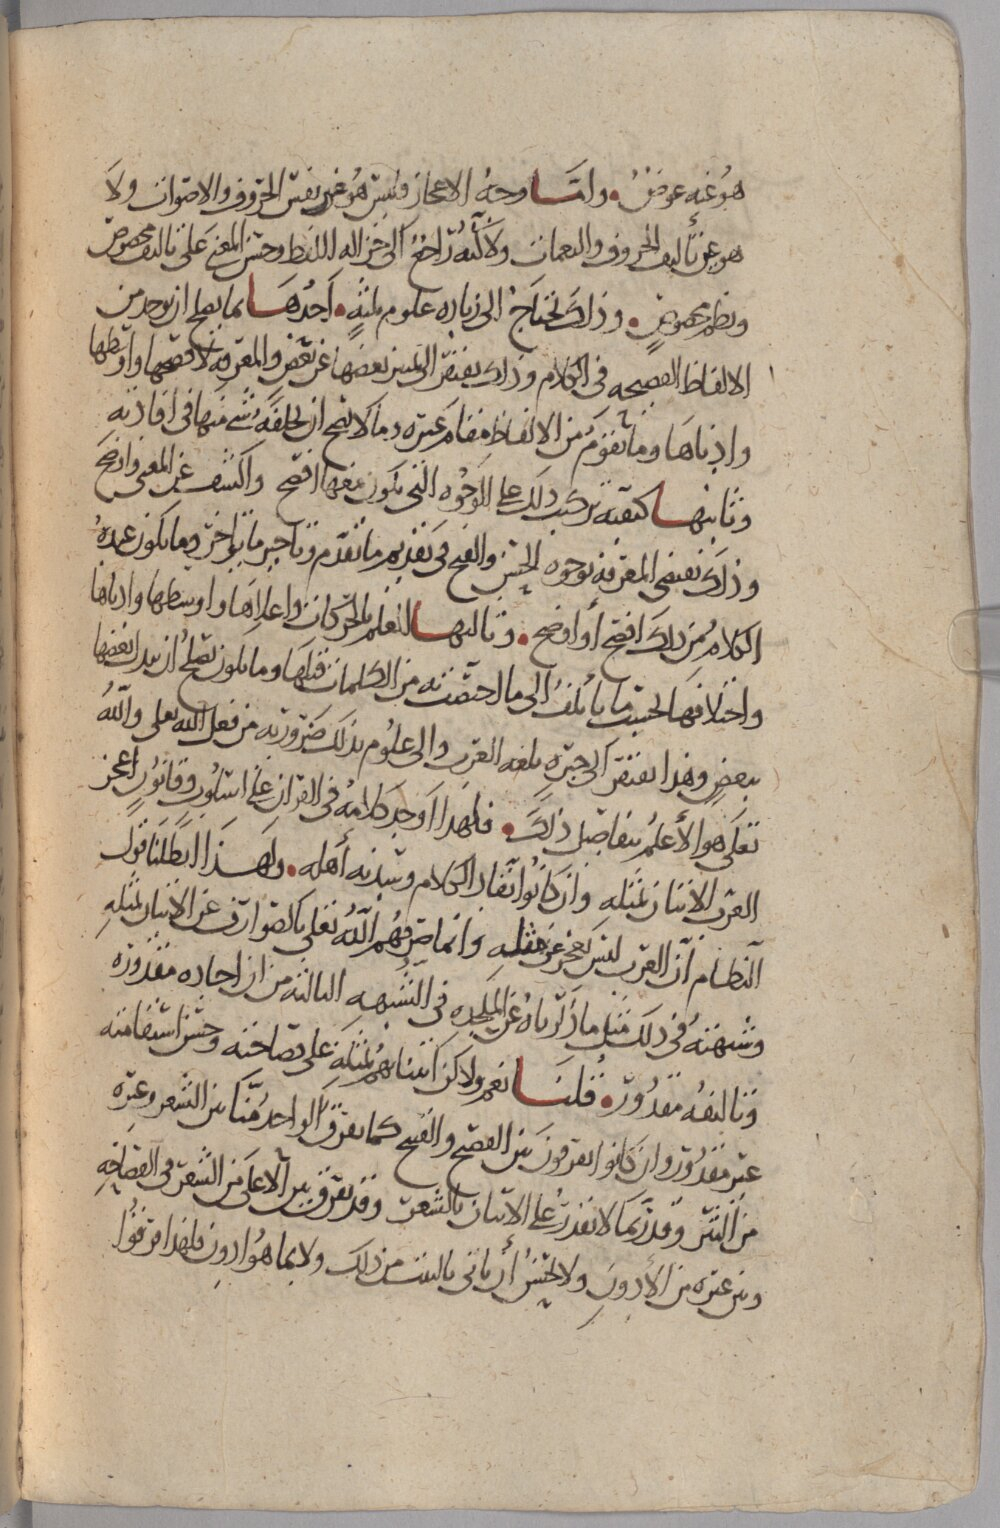 هو عنه عوض. واما وجه الاعجاز فليس هو غير نفس الحروف والاصوات ولا
هو عين تأليف الحروف والنغمات ولأنه راجع الى جزالة اللفظ وحسن المعنى على تأليف مخصوص
ونظم مخصوص. وذلك يحتاج الى زياده علوم ثلثة. احدها بما يصلح ان يوجد من
الالفاظ الفصيحه في الكلام وذلك يفتقر الى تمييز بعضها عن بعض والمعرفة لافصحها واوسطها
وادناها وما يقوم من الالفاظ مقام غيره وما لا يصح ان يخلفه شيء منها في افادته
وثانيها كيفية تركيب ذلك على الوجوه التي يكون معها افصح واكشف عن المعنى واوضح
وذلك يقتضي المعرفة بوجوه الحسن والقبح في تقديم ما تقدم وتأخير ما يؤاخر وما يكون عنده
الكلام من ذلك افصح أو اوضح. وثالثها العلم بالحركات واعلاها واوسطها وادناها
واختلافها بحسب ما يأتلف الى ما احتفت به من الكلمات قبلها وما يكون يصلح ان يبدل بعضها
ببعض وهذا يفتقر الى خبره بلغه العرب والى علوم بذلك ضرورية من فعل الله تعلى والله
تعلى هو الأعلم بتفاصيل ذلك. فلهذا اوجد كلامه في القران على اسلوب وقانون اعجز
العرب الاتيان بمثله وان كانوا نقاد الكلام وشيدنه أهله. ولهذا ابطلنا قول
النظام أن العرب ليس تعجز عن مثله وانما صرفهم الله تعلى بالصوارف عن الاتيان بمثله
وشبهته في ذلك مثل ما ذكرناه عن الملحده في الشبهه الثالثه من ان احاده مقدوره
وتأليفه مقدور. قلنا نعم ولاكن اتيانهم بمثله على فصاحته وحسن استقامته
غير مقدور وان كانوا يفرقون بين الفصيح والقبيح كما يفرق الواحد منا بين الشعر وغيره
من النثر وقد ربما لا نقدر على الاتيان بالشعر وقد نفرق بين الاعلى من الشعر في الفصاحه
وبين غيره من الأدون ولا يحسن أن يأتي بالبيت من ذلك ولا بما هو ادون فلهذا فرقوا